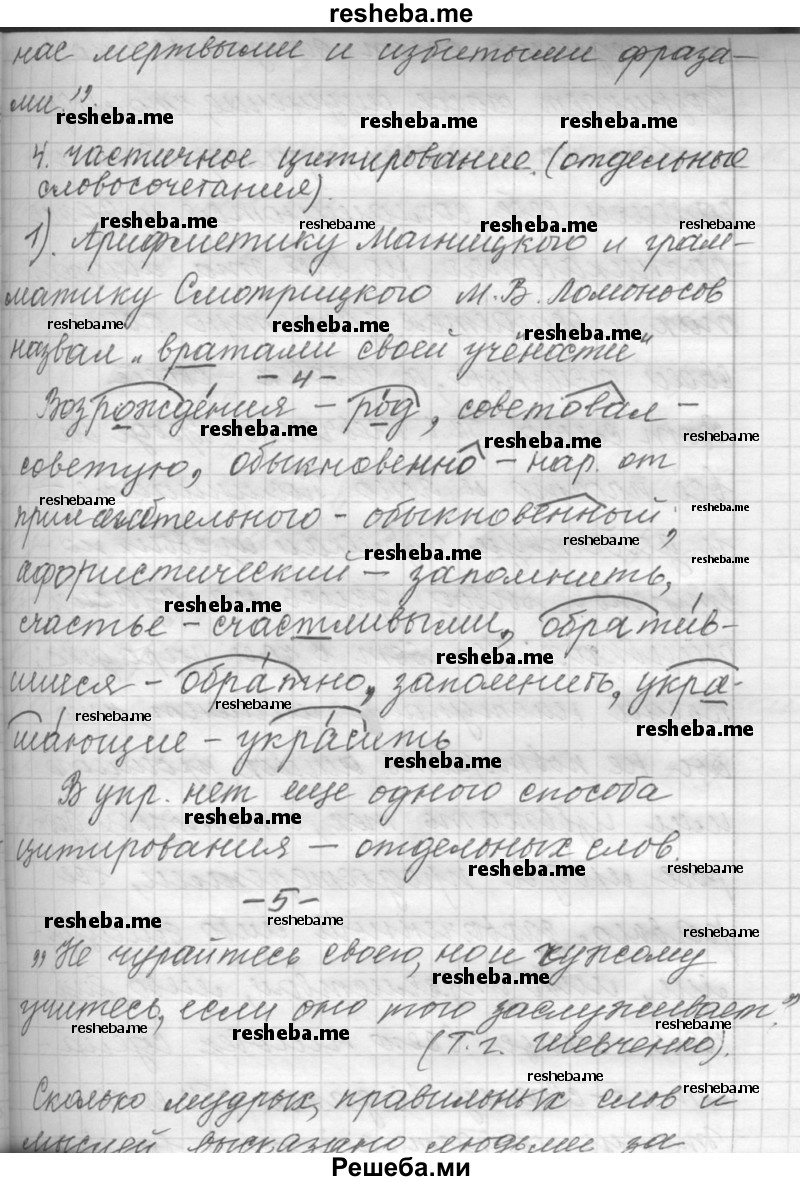 resheba.me
нас мертвыми и избитыми фраза-
ми."
4. частичное цитирование. (отдельные
словосочетания)
1). Арифметику Магницкого и грам-
матику Смотрицкого М.В. Ломоносов
назвал „вратами своей учёности"
- 4 -
Возрождения - род, советовал -
советую, обыкновенно - нар. от
прилагательного - обыкновенный,
афористический - запомнить,
счастье - счастливыми, обратив-
шиеся - обратно, запомнить, укра-
шающие - украсить
В упр. нет еще одного способа
цитирования - отдельных слов.
- 5 -
„Не чурайтесь своего, но и чужому
учитесь, если оно того заслуживает."
(Т. Г. Шевченко).
Сколько мудрых, правильных слов и
мыслей высказано людьми за
Решеба.ми